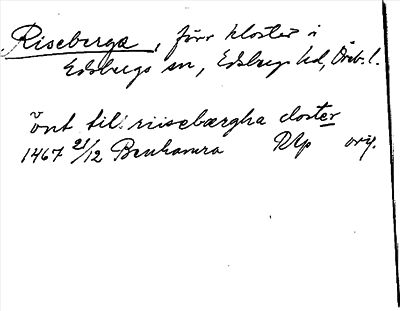 Riseberga, förr kloster i
Edsbergs sn, Edsbergs hd, Öreb. l.
vnt til riisebærgha closter
1467 21/12 Benhamra RAp orig.